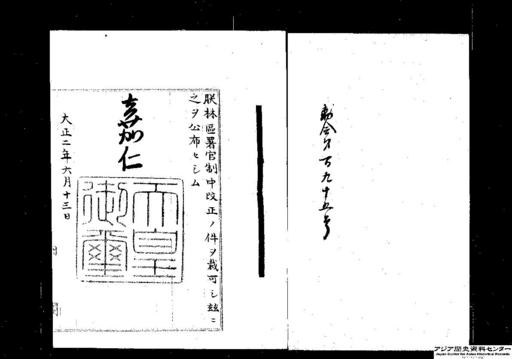 勅令第百九十五号
朕林區署官制中改正ノ件ヲ裁可シ玆ニ
之ヲ公布セシム
嘉仁
天皇御璽
大正二年六月十三日
アジア歴史資料センター
Japan Center for Asian Historical Records